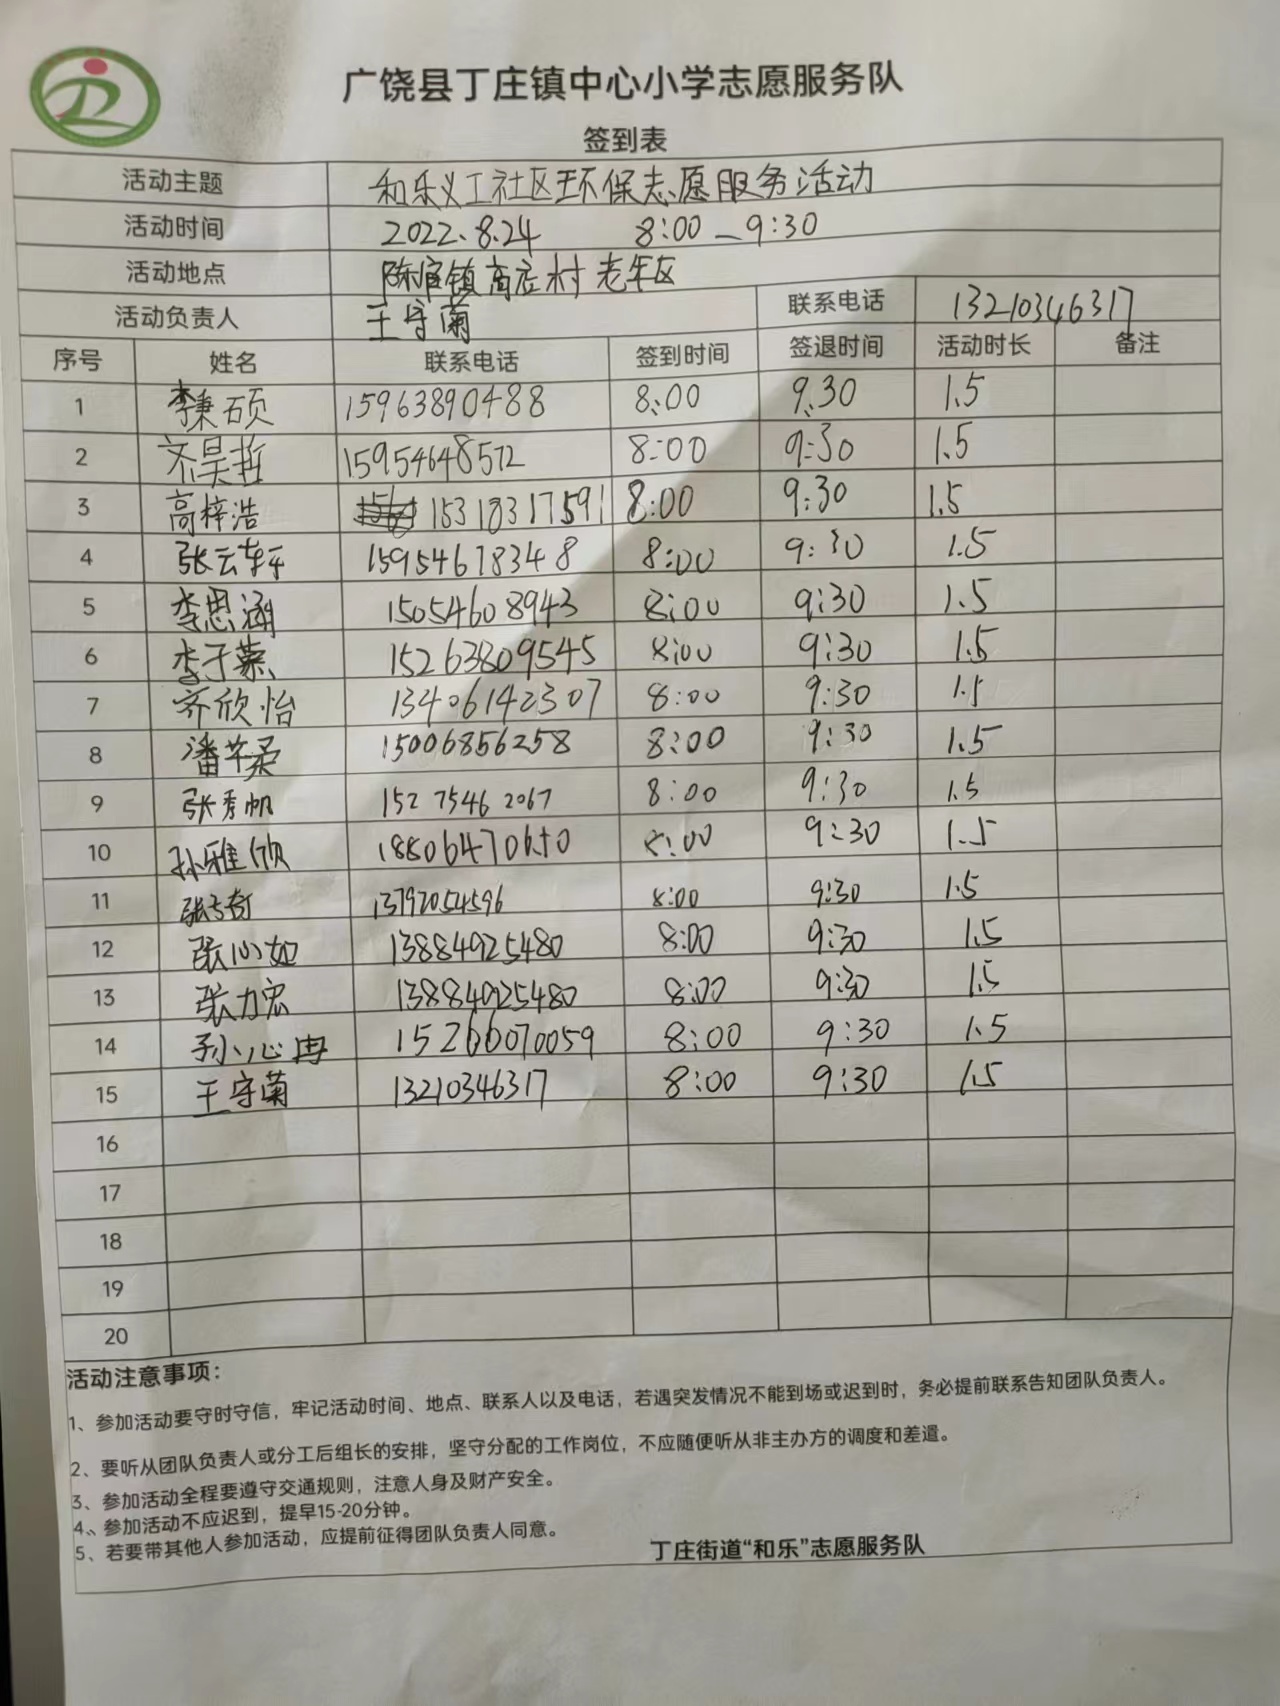 广饶县丁庄镇中心小学志愿服务队
签到表
活动主题 和乐义工社区环保志愿服务活动
活动时间 2022.8.24 8:00—9:30
活动地点 陈官镇高庄村老年区
活动负责人 王守菊 联系电话 13210346317
序号 姓名 联系电话 签到时间 签退时间 活动时长 备注
1 李秉硕 15963890488 8:00 9:30 1.5
2 齐昊哲 15954648572 8:00 9:30 1.5
3 高梓浩 15318317591 8:00 9:30 1.5
4 张云 15954678348 8:00 9:30 1.5
5 李思涵 15054608943 8:00 9:30 1.5
6 李子萦 15263809545 8:00 9:30 1.5
7 齐欣怡 13406142307 8:00 9:30 1.5
8 潘芊柔 15006856258 8:00 9:30 1.5
9 张秀帆 15275462067 8:00 9:30 1.5
10 孙雅欣 18806470650 8:00 9:30 1.5
11 张 奇 13792054596 8:00 9:30 1.5
12 张心如 13884925480 8:00 9:30 1.5
13 张力宏 13884925480 8:00 9:30 1.5
14 孙心冉 15266070059 8:00 9:30 1.5
15 王守菊 13210346317 8:00 9:30 1.5
16
17
18
19
20
活动注意事项：
1、参加活动要守时守信，牢记活动时间、地点、联系人以及电话，若遇突发情况不能到场或迟到时，务必提前联系告知团队负责人。
2、要听从团队负责人或分工后组长的安排，坚守分配的工作岗位，不应随便听从非主办方的调度和差遣。
3、参加活动全程要遵守交通规则，注意人身及财产安全。
4、参加活动不应迟到，提早15-20分钟。
5、若要带其他人参加活动，应提前征得团队负责人同意。
丁庄街道“和乐”志愿服务队